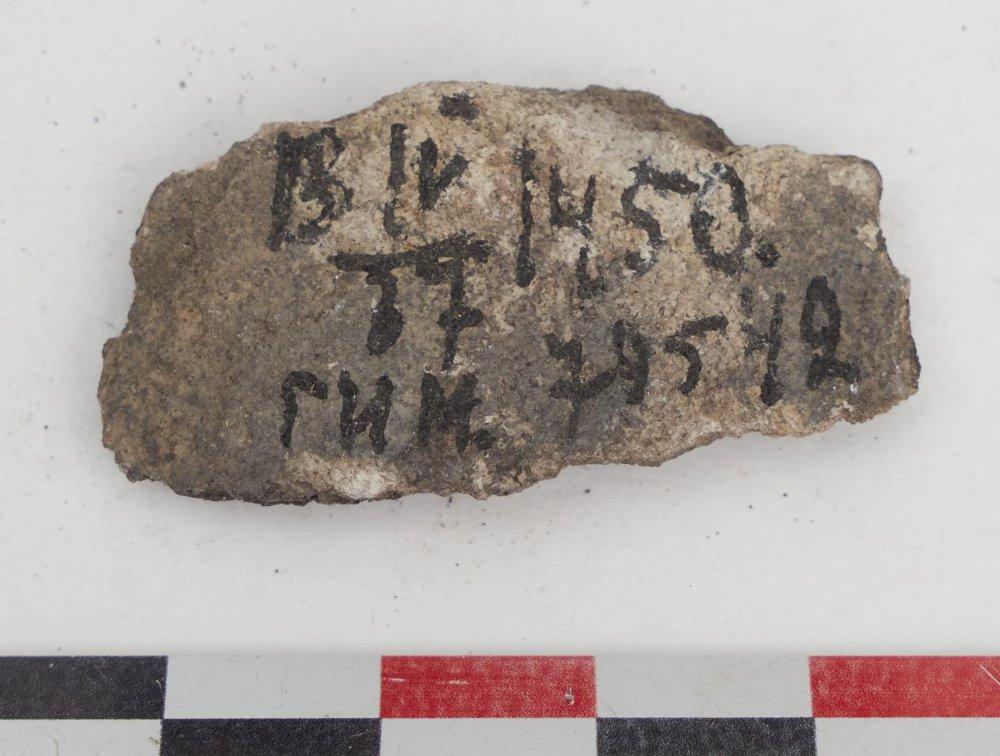 В IV 1450.
57
ГИМ. 79542